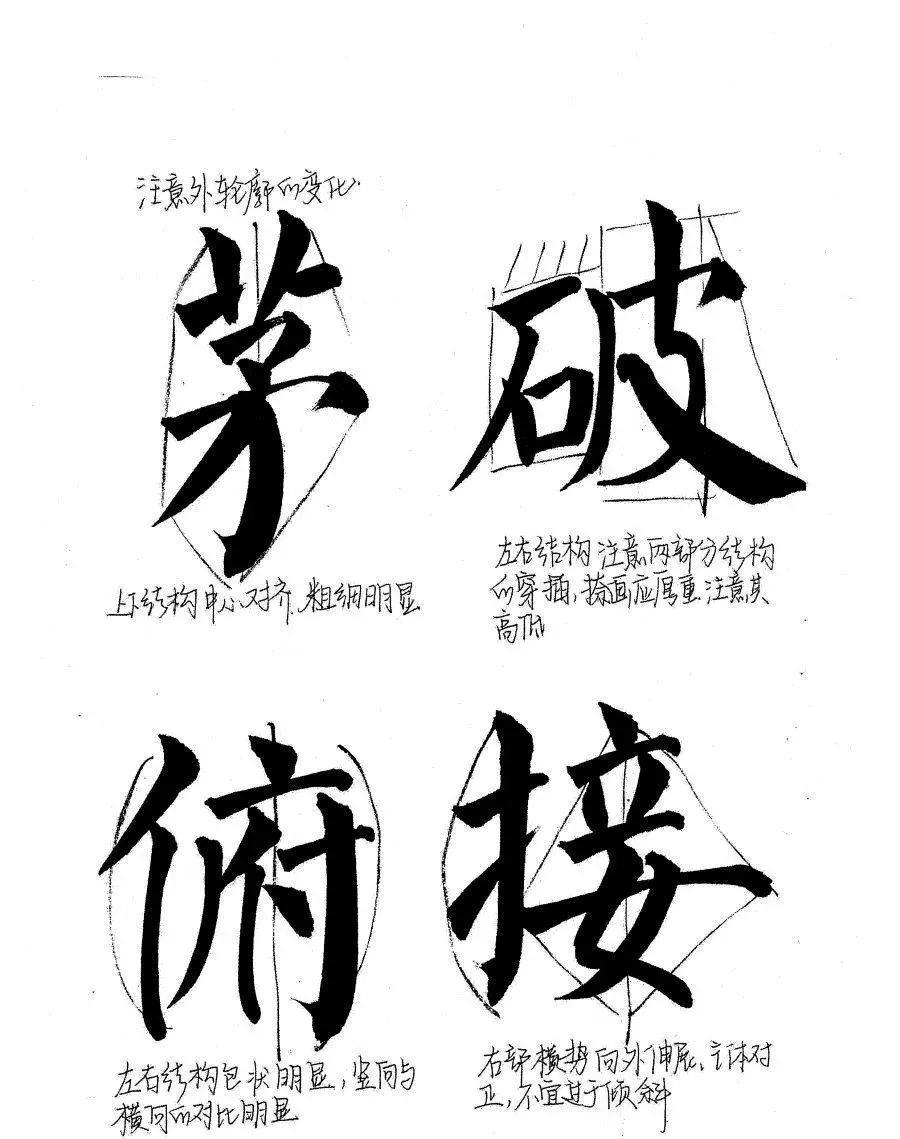 注意外轮廓的变化.
茅
破
上下结构中心对齐.粗细明显
左右结构 注意两部分结构
的穿插,捺画应厚重 注意其
高低
俯
接
左右结构包状明显,竖向与
横向的对比明显
右部横势向外伸展,主体对
正,不宜过于倾斜